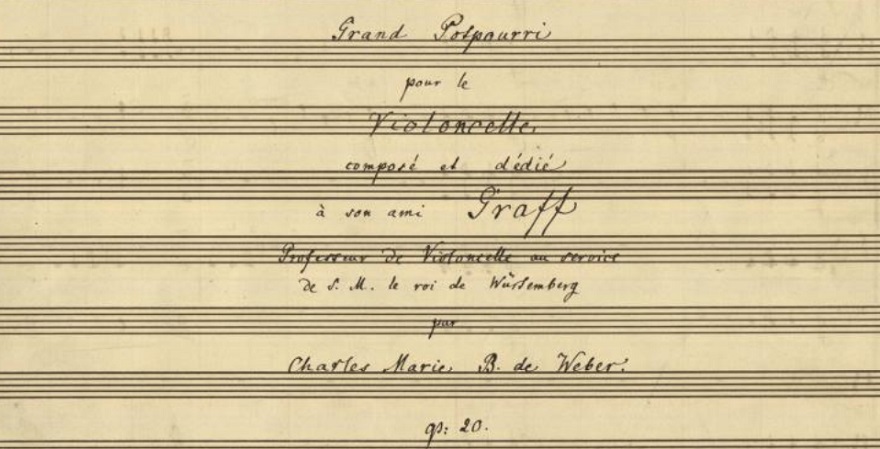 Grand Potpourri
pour le
Violoncelle,
composé et dédié
à son ami Graff
Professeur de Violoncelle au service
de S. M. le roi de Würtemberg
par
Charles Marie B. de Weber.
op: 20.